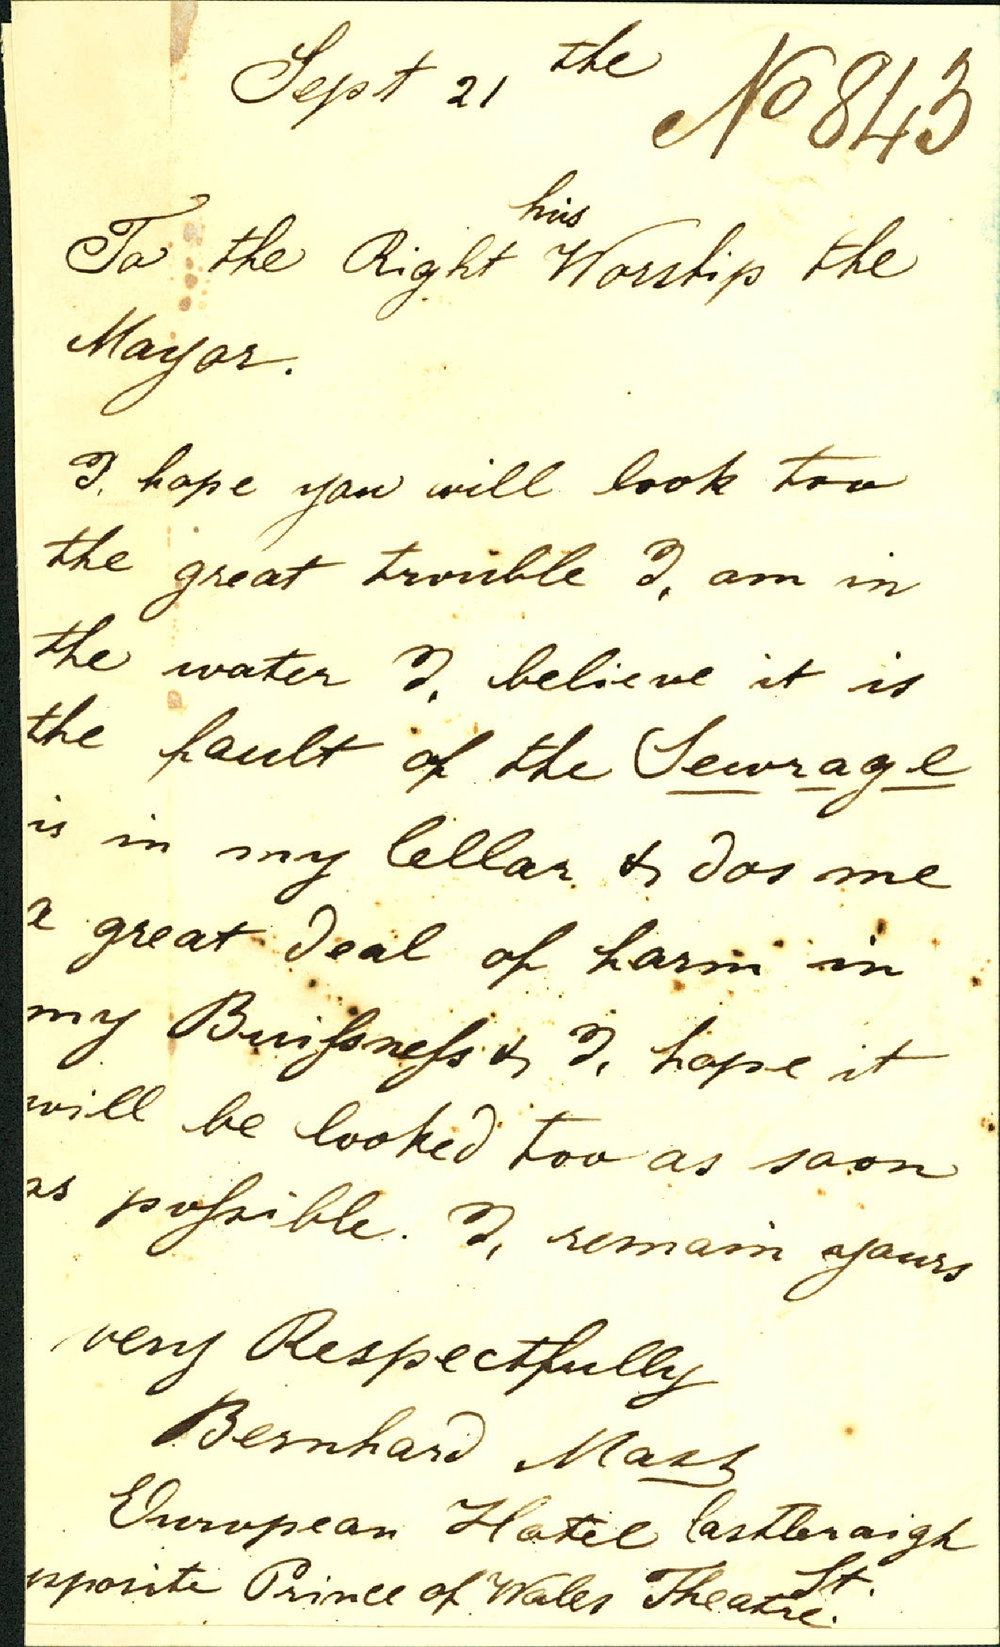 Sept 21 the
No 843
To the Right his Worship the
Mayor.
I, hope you will look too
the great trouble I, am in
the water I, believe it is
the fault of the Sewrage
is in my Cellar & dos me
a great deal of harm in
my Buissness & I, hope it
will be looked too as soon
as possible. I, remain yours
very Respectfully
Bernhard
European Hotel Castleraigh
St.
opposite Prince of Wales Theatre.